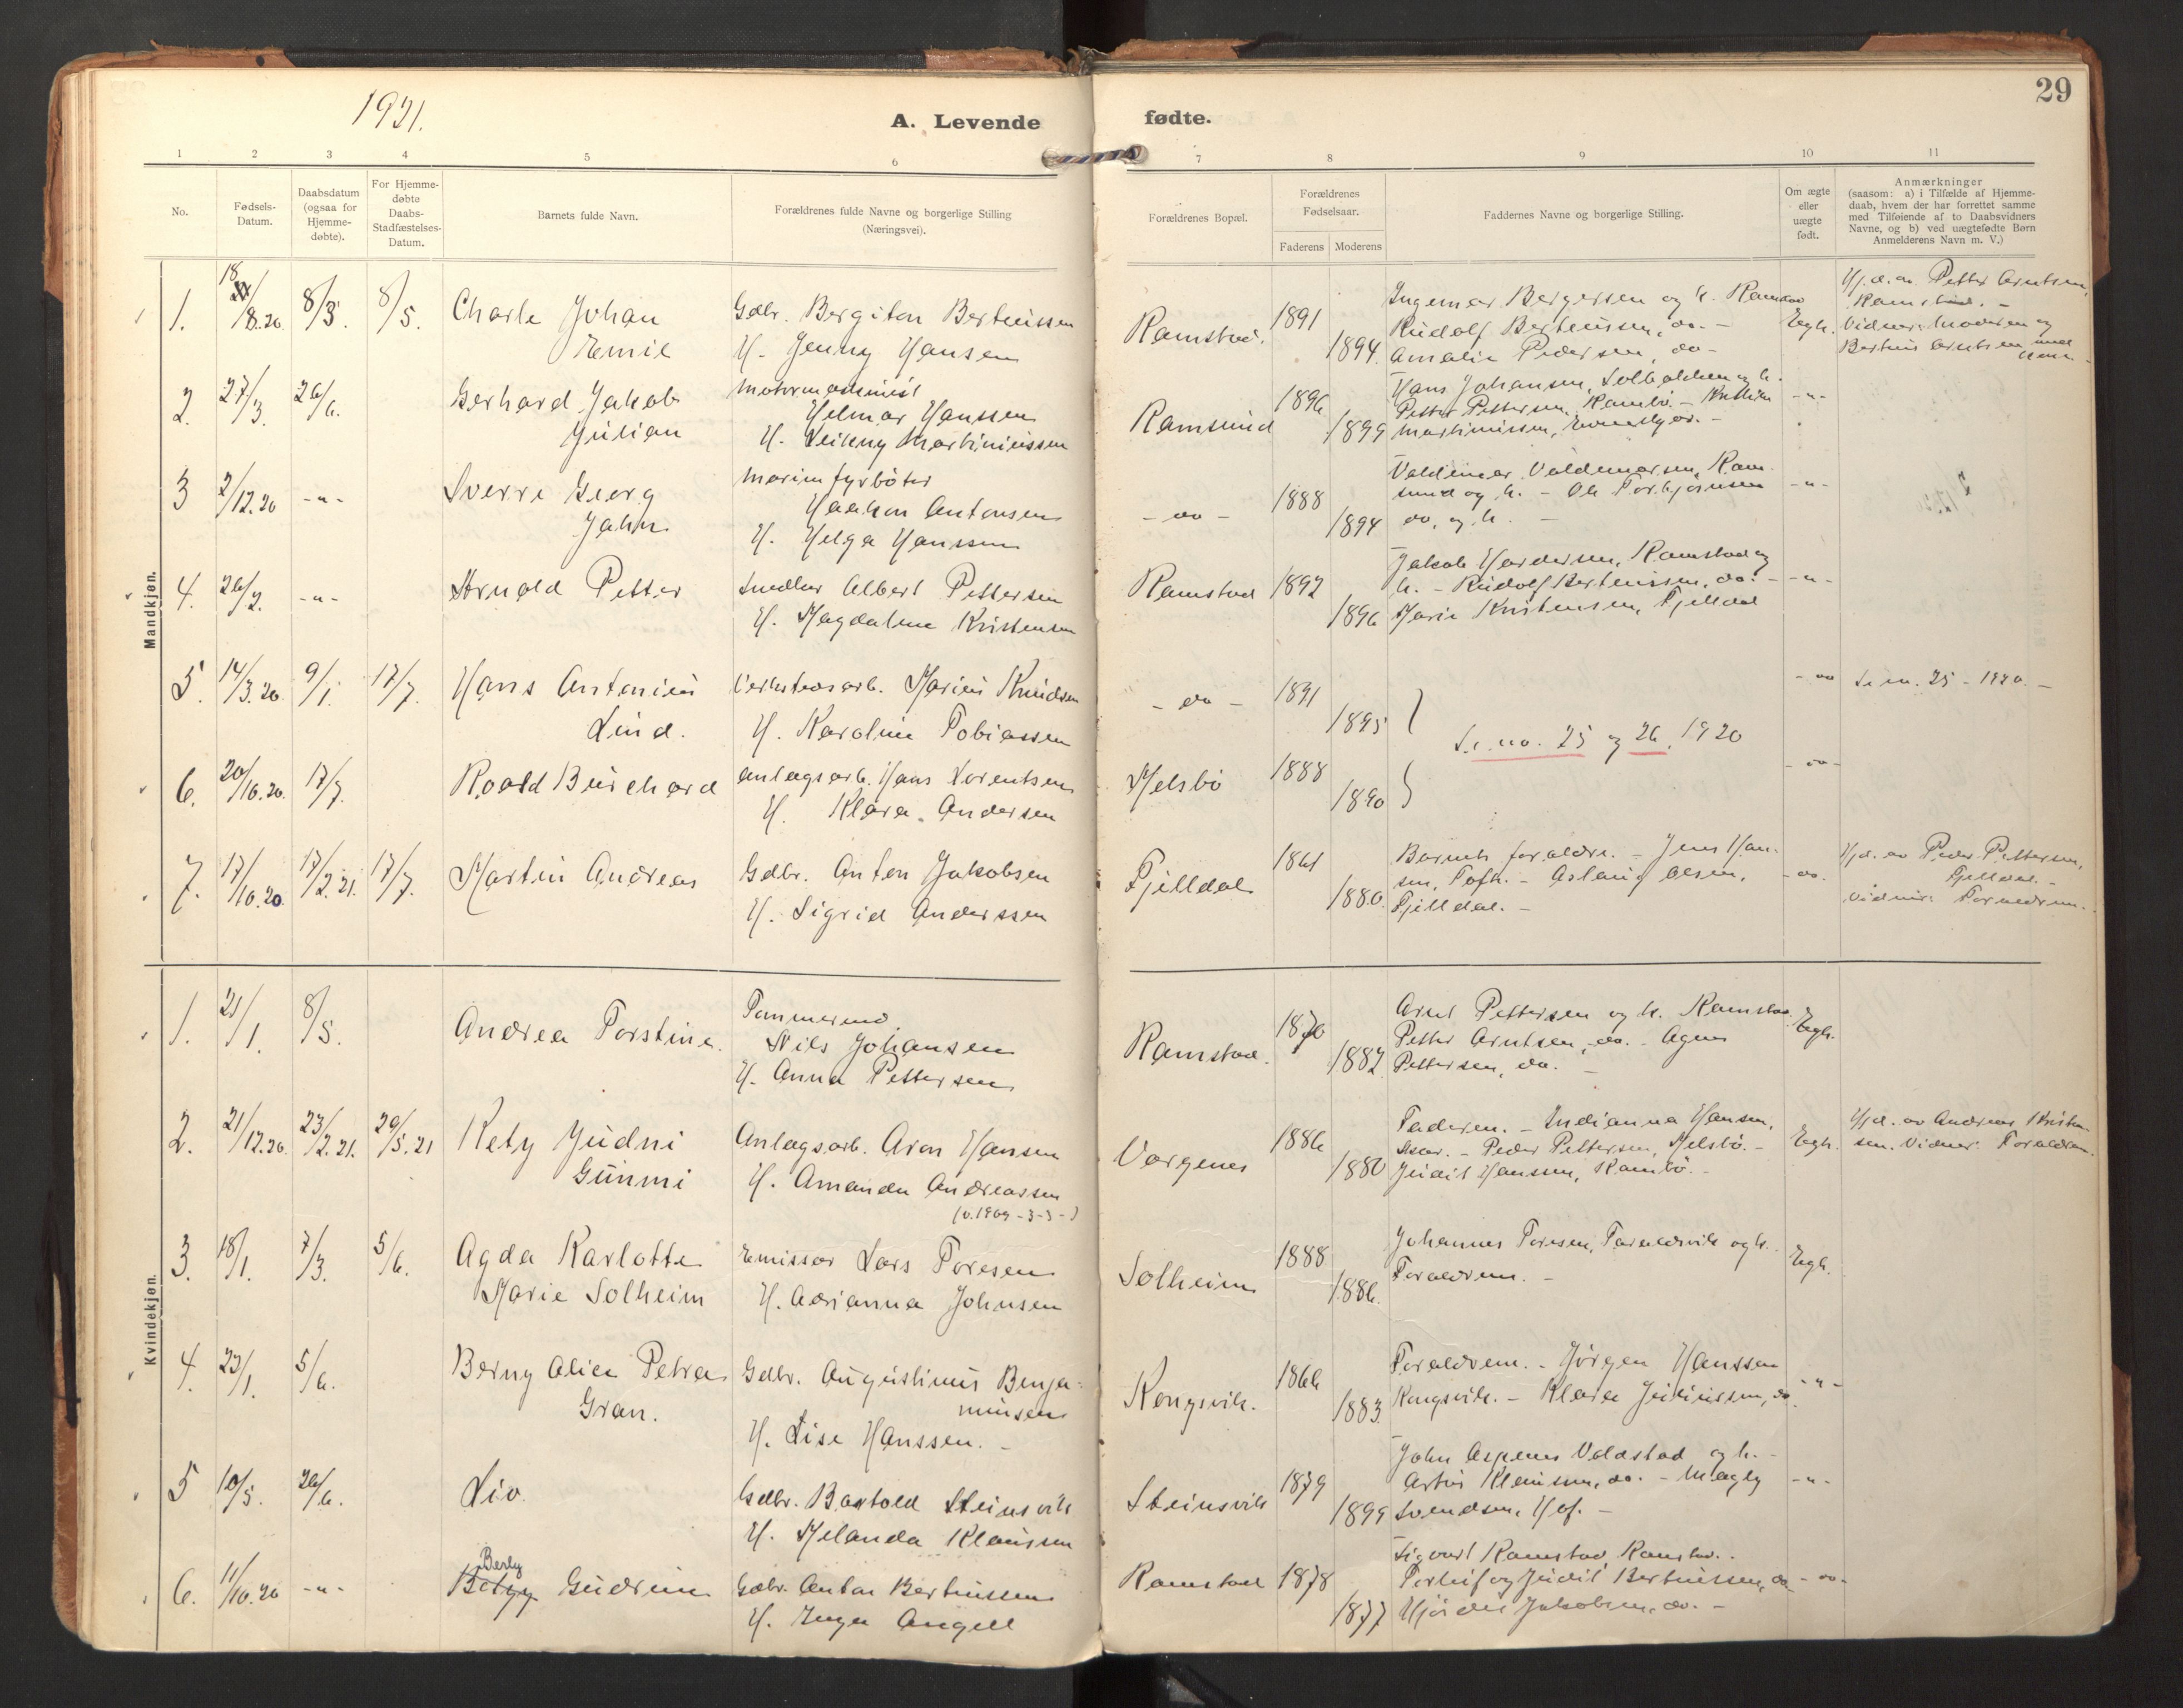 1921.
A. Levende
1 2 3 4 5 6
No.
Fødsels-
Datum.
Daabsdatum
(ogsaa for
Hjemme-
døbte).
For Hjemme-
døbte
Daabs-
Stadfæstelses-
Datum.
Barnets fulde Navn.
Forældrenes fulde Navne og borgerlige Stilling
(Næringsvei).
Mandkjøn.
1. 18/8.20 8/3. 8/5. Charle Johan
Emil
Gdbr. Bergiton Berteussen
H. Jenny Hansen
2. 27/3. 26/6. Gerhard Jakob
Julian
Motormaskinist
Helmar Hanssen
H. Leikny Martinussen
3 2/12.20 -"- Sverre Georg
John
Marinefyrbøter
Haakon Antonsen
H. Helga Hanssen
4. 26/2. -"- Arnold Petter
Snedker Albert Pettersen
H. Magdalene Kristensen
5. 14/3.20 9/1. 17/7. Hans Antonius
Lind.
Verkstedsarb. Marius Knudsen
H. Karoline Tobiassen
6. 20/10.20. 17/7. Roald Burchard
Anlægsarb. Hans Lorentsen
H. Klara Andersen
7. 17/10.20. 17/2.21. 17/7. Martin Andreas
Gdbr. Anton Jakobsen
H. Sigrid Anderssen
Kvindekjøn.
1. 21/1. 8/5. Andrea Torstine.
Tømmermd.
Nils Johansen
H. Anna Pettersen
2. 21/12.20. 23/2.21. 29/5.21 Kety Judni
Gunmi
Anlægsarb. Aron Hansen
H. Amanda Andreassen
(v. 1909-3-3-)
3. 18/1. 7/3. 5/6. Agda Karlotte
Marie Solheim
Emissær Lars Toresen
H. Adrianna Johnsen
4. 23/1. 5/6. Berny Alice Petra
Gran.
Gdbr. Augustinus Benja-
minsen
H. Lise Hanssen. -
5 10/5. 26/6. Liv
Gdbr. Bartold Steinsvik
H. Helanda Klaussen
Berly
6. 11/10.20 -"- Betzy Gudrun
Gdbr. Anton Berteussen
H. Inga Angell
fødte.
29
7 8 9 10 11
Forældrenes Bopæl.
Forældrenes
Fødselsaar.
Faderens Moderens
Faddernes Navne og borgerlige Stilling.
Om ægte
eller
uægte
født.
Anmærkninger
(saasom: a) i Tilfælde af Hjemme-
daab, hvem der har forrettet samme
med Tilføiende af to Daabsvidners
Navne, og b) ved uægtefødte Børn
Anmelderens Navn m. V.)
Ramstad. 1891 1894.
Ingemar Bergersen og h. Ramstad
Rudolf Berteussen, do. -
Amalie Pedersen, do -
Egte.
Hj.d. av Petter Arntsen,
Ramstad. -
Vidner: Moderen og
Berteus Arntsen
Ramsund 1896 1899
Hans Johansen, Solbakken og h.
Petter Pettersen, Rambø. -
Martinussen, -"-
- do - 1888 1894
Valdemar Valdemarsen, Ram-
sund og h. - Ole Torbjørnsen
do, og h. - -"-
Ramstad 1892 1896
Jakob Hardersen, Ramstad og
h. - Rudolf Berteussen, do. - -"-
Marie Kristensen, Fjelldal
- do - 1891 1895
- do Se no. 25 - 1920. -
Se no. 25 og 26, 1920
Melsbø 1888 1890 - do -
Fjelldal 1861 1880.
Barnets forældre. - Jens Han-
sen, Toft. - Aslaug Olsen,
Fjelldal. - - do.
Hj.d. av Peder Pettersen,
Fjelldal. -
Vidner: Forældrene.
Ramstad. 1870 1882
Arnt Pettersen og h. Ramstad.
Petter Arntsen, do. - Agnes
Pettersen, do. - Egte.
Vargenes 1886 1880
Faderen. - Indianna Hansen,
- Peder Pettersen, Melsbø. -
Judit Hanssen, Rambø. -
Egte.
Hj.d. av Andreas Kristen-
sen. Vidner: Forældrene.
Solheim 1888 1886.
Johannes Toresen, Taraldsvik og h.
Forældrene. - Egte.
Kongsvik. 1866 1883.
Forældrene. - Jørgen Hanssen
Kongsvik. - Klara Juliussen, do. -"-
Steinsvik 1879 1899
John Aspenes Valdstad og h. -
Klaussen, do. - Magly
Svendsen, Hof. - -"-
Ramstad 1878 1877
Sigvart Ramstad, Ramstad.
Torleif og Judit Berteussen, do - do -
Hjørdis Jakobsen, do. -